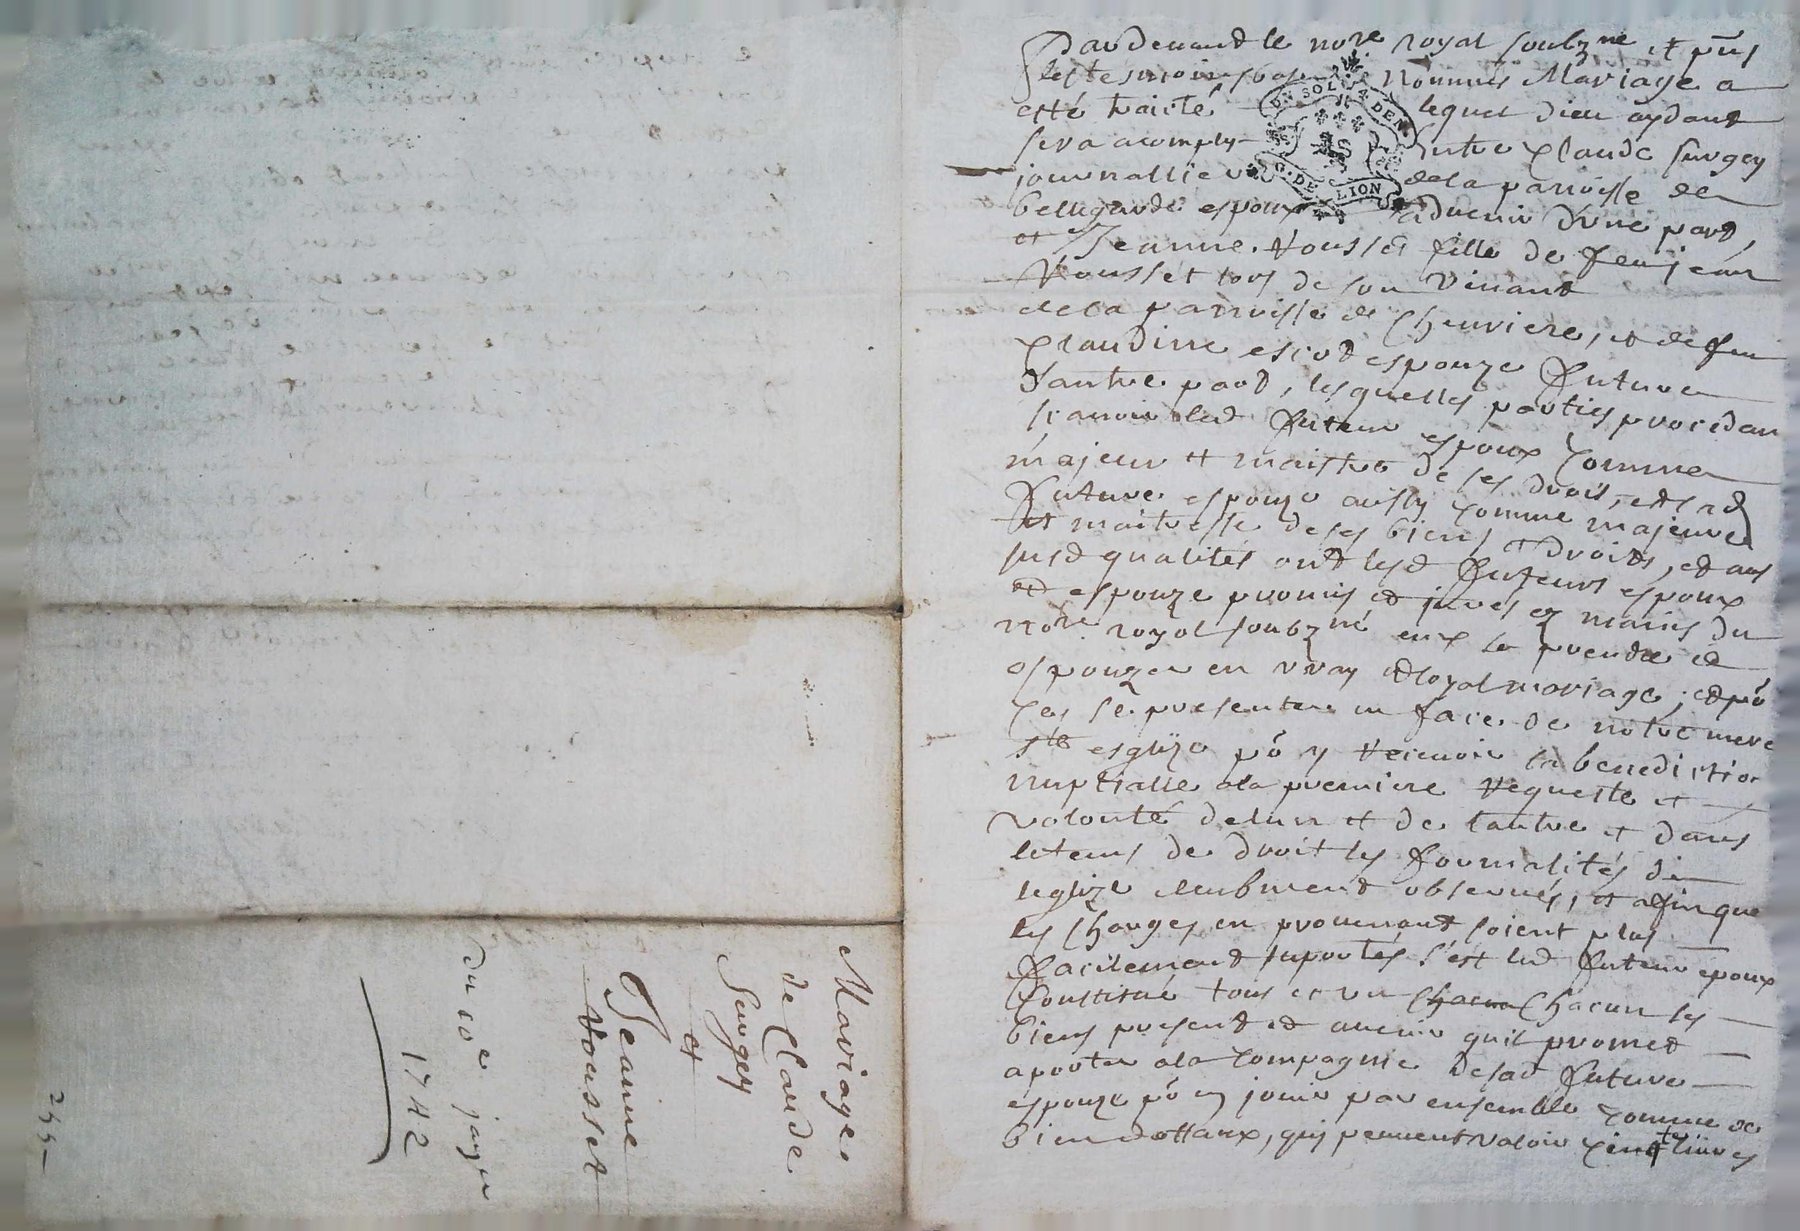 Pardevant le nore royal soubzne et pns
les tesmoins bas nommés Mariage a
esté traicté lequel dieu aydant
sera acomply entre Claude Surgey
journallier de la parroisse de
bellegarde espoux advenir d'une part,
et Jeanne Rousset fille de feu jean
Rousset lors de son vivant
de la parroisse de Cheuriere, et de feu
Claudine espouze future
d'autre part, lesquelles parties procedan
scavoir led futeur espoux comme
majeur et maistre de ses drois, et lad
future espouze aussy comme majeure
et maitresse de ses biens et droits, et aus
susd qualités ont lesd futeurs espoux
et espouze promis et jurés ez mains du
nore royal soubzné eux se prendre et
espouzer en vray et loyal mariage, et po
ces se presenter en face de notre mere
ste esglize po y recevoir la benediction
nuptialle a la premiere requeste et
volonté de lun et de lautre et dans
le tems de droit les formalités de
leglize deubment observés, et afin que
les charges en provenant soient plus
facilement suportés s'est led futeur epoux
Constitué tous et un chacun Chacun ses
biens present et avenir quil promet
aporter a la compagnie de sad future
espouze po en jouir par ensemble comme de
bien dottaux, qui peuvent valoir cent livres
DN SOL 4 DEN
G. DE LION
Mariage
de Claude
Surgey
et
Jeanne
Rousset
du 10e janer
1742